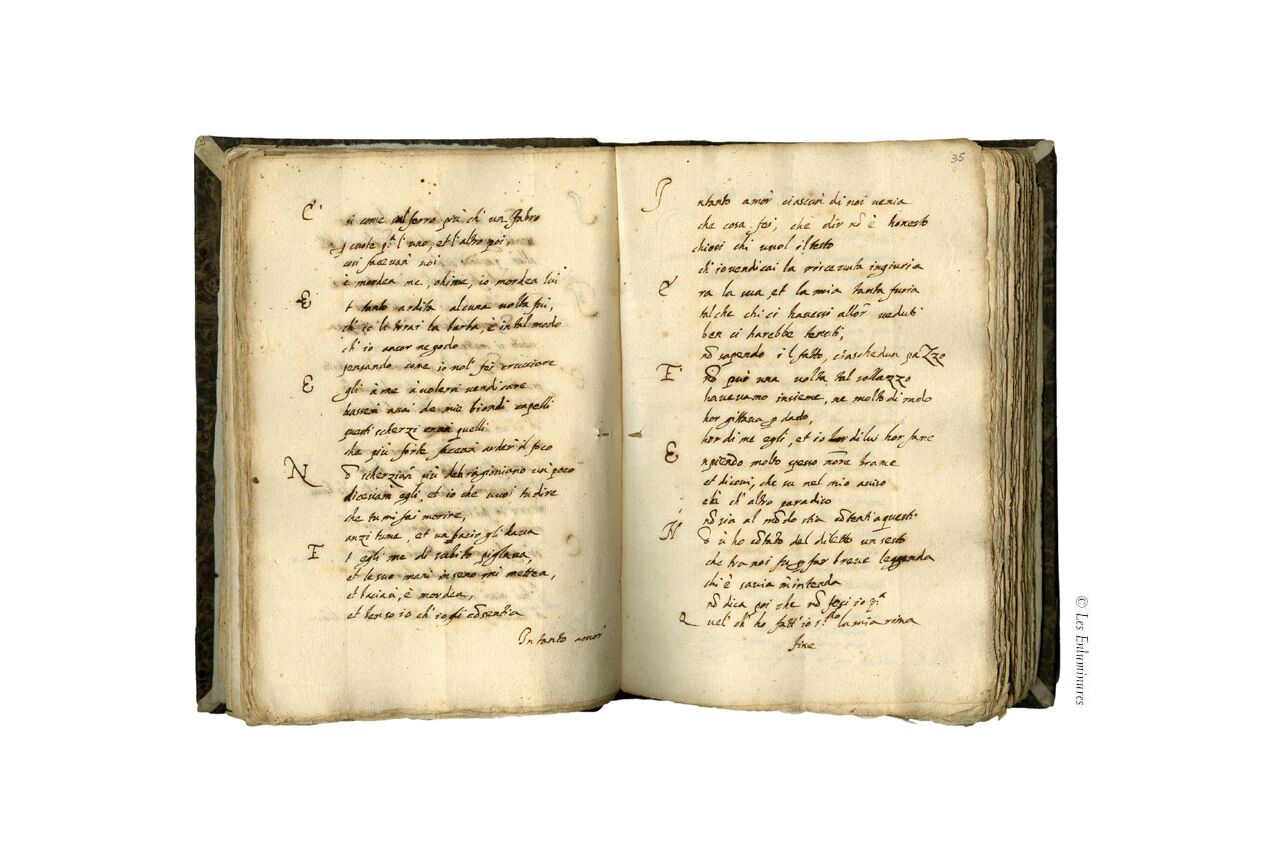 E
ti come sul ferro più ch' un fabro
et l'altro poi,
cosi facevan noi
è mordea me, ohime, io mordea lui
E
t tanto ardita alcuna volta fui,
ch' io li tirai la barba, è in tal modo
ch' io ancor ne godo
pensando come io nol' fei crucciare
E
gli à me à volersi vendicare
de miei biondi capelli
questi scherzi eran quelli
che più forte facean arder il foco
N
õ scherzian più deh ragioniano un poco
diceviam egli, et io che vuoi tu dire
che tu mi fai morire,
anzi tu me, et un bacio gli dava
E
t egli me di subito pigliava,
et le sue mani in seno mi mettea,
et baciava, è mordea,
et ben so io ch' io gli cõsentia
Intanto amor'
35
I
ntanto amor' ciascun di noi venia
che cosa fei, che dir nõ è honesto
chiosi chi vuol il testo
ch' io vendicai la ricevuta ingiuria
E
ra la sua, et la mia tanta furia
tal che chi ci havessi allhor veduti
ben ci harebbe tenuti,
nõ sapendo il fatto, ciaschedun paZzo
E
nõ pur una volta tal sollazzo
havevamo insieme, ne molto di rado
hor gittava dado,
hor di me egli, et io hor di lui hor fane
E
mpiendo molto spesso nõre brame
et dicovi, che su nel mio aviso
ch' altro paradiso
nõ sia al mõdo chia cõtenti aquesti
N
õ vi ho cõtado del diletto un sesto
che tra noi fu p far breve leggenda
chi è savia m'intenda
nõ dica poi che nõ feci io pª
Q
uel' ch' ho fatt' io la mia rima
fine
© Les Enluminures